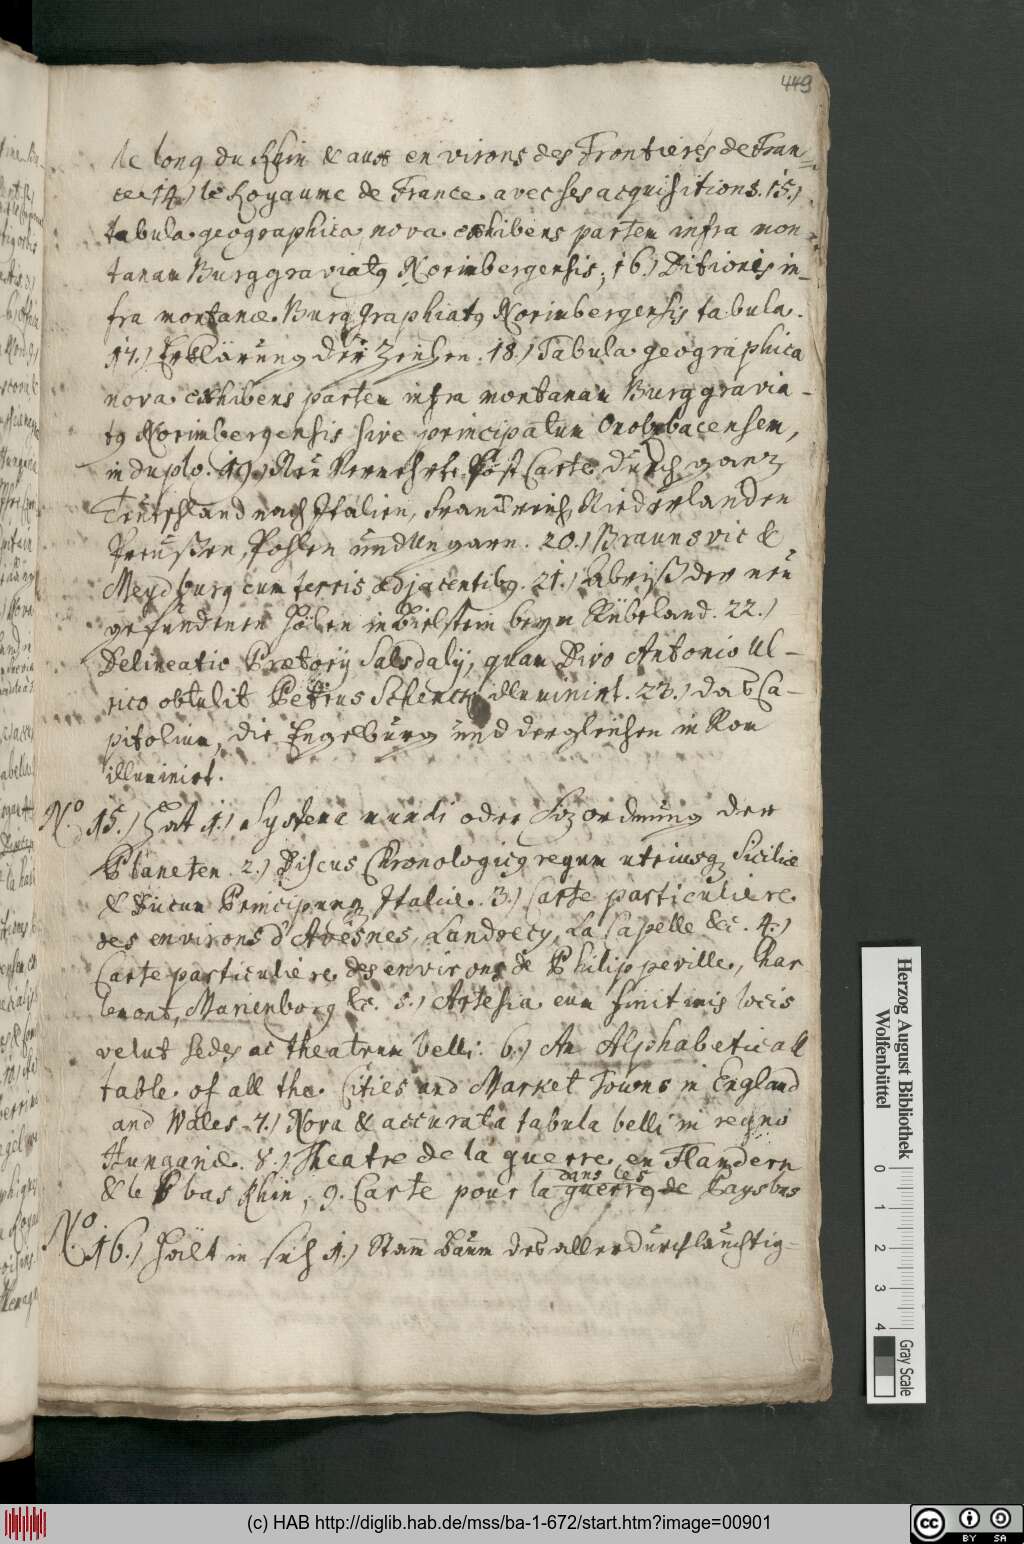 449
le long du Rhin & aux environs des Frontieres de Fran-
ce. 14.) le Royaume de France avec ses acquisitions. 15.)
tabula geographica nova exhibens partem infra mon-
tanam Burggraviatg Norimbergensis, 16.) Ditionis in-
fra montanæ Burggraphiatg Norimbergensis tabula.
17.) Erklärung der Zeichen. 18.) Tabula geographica
nova exhibens partem infra montanam Burggravia-
tg Norimbergensis sive principatum Onolzbacensem,
in duplo. 19.) Neu Vermehrte Post Carte durch ganz
Teutschland nach Italien, Franckreich, Niederlanden
Preußen, Pohlen und Ungarn. 20.) Braunsvic &
Meydburg cum terris adjacentibg. 21.) Abriß der neu
gefundenen Hölen im Bielstein beym Rübeland. 22.)
Delineatio Prætorij Salsdalij, quam Divo Antonio Ul-
rico obtulit Petrus Schenck illuminirt. 23.) das Ca-
pitolium, die Engelburg und dergleichen in Rom
illuminirt.
No 15.) Hat 1.) Systema mundi oder
der
Planeten. 2.) Discus Chronologicg regum utriusq Siciliæ
& Ducum Principumq Italiæ. 3.) Carte particuliere
des environs d'Avesnes, Landrecy, La Capelle &c. 4.)
Carte particuliere des environs de Philippeville, Char
lemont, Marienborg &c. 5.) Artesia cum finitimis locis
velut sedes ac theatrum belli. 6.) An Alphabeticall
table of all the Cities and Market Towns in England
and Wales. 7.) Nova & accurata tabula belli in regno
Hungariæ. 8.) Theatre de la guerre en Flandern
& le bas Rhin, 9. Carte pour la guerre dans les Paysbas
No 16.) Hält in sich 1.) Stam̄ Baum des allerdurchlauchtig-
Herzog August Bibliothek
Wolfenbüttel
0 1 2 3 4
Gray Scale
(c) HAB http://diglib.hab.de/mss/ba-1-672/start.htm?image=00901
cc BY SA